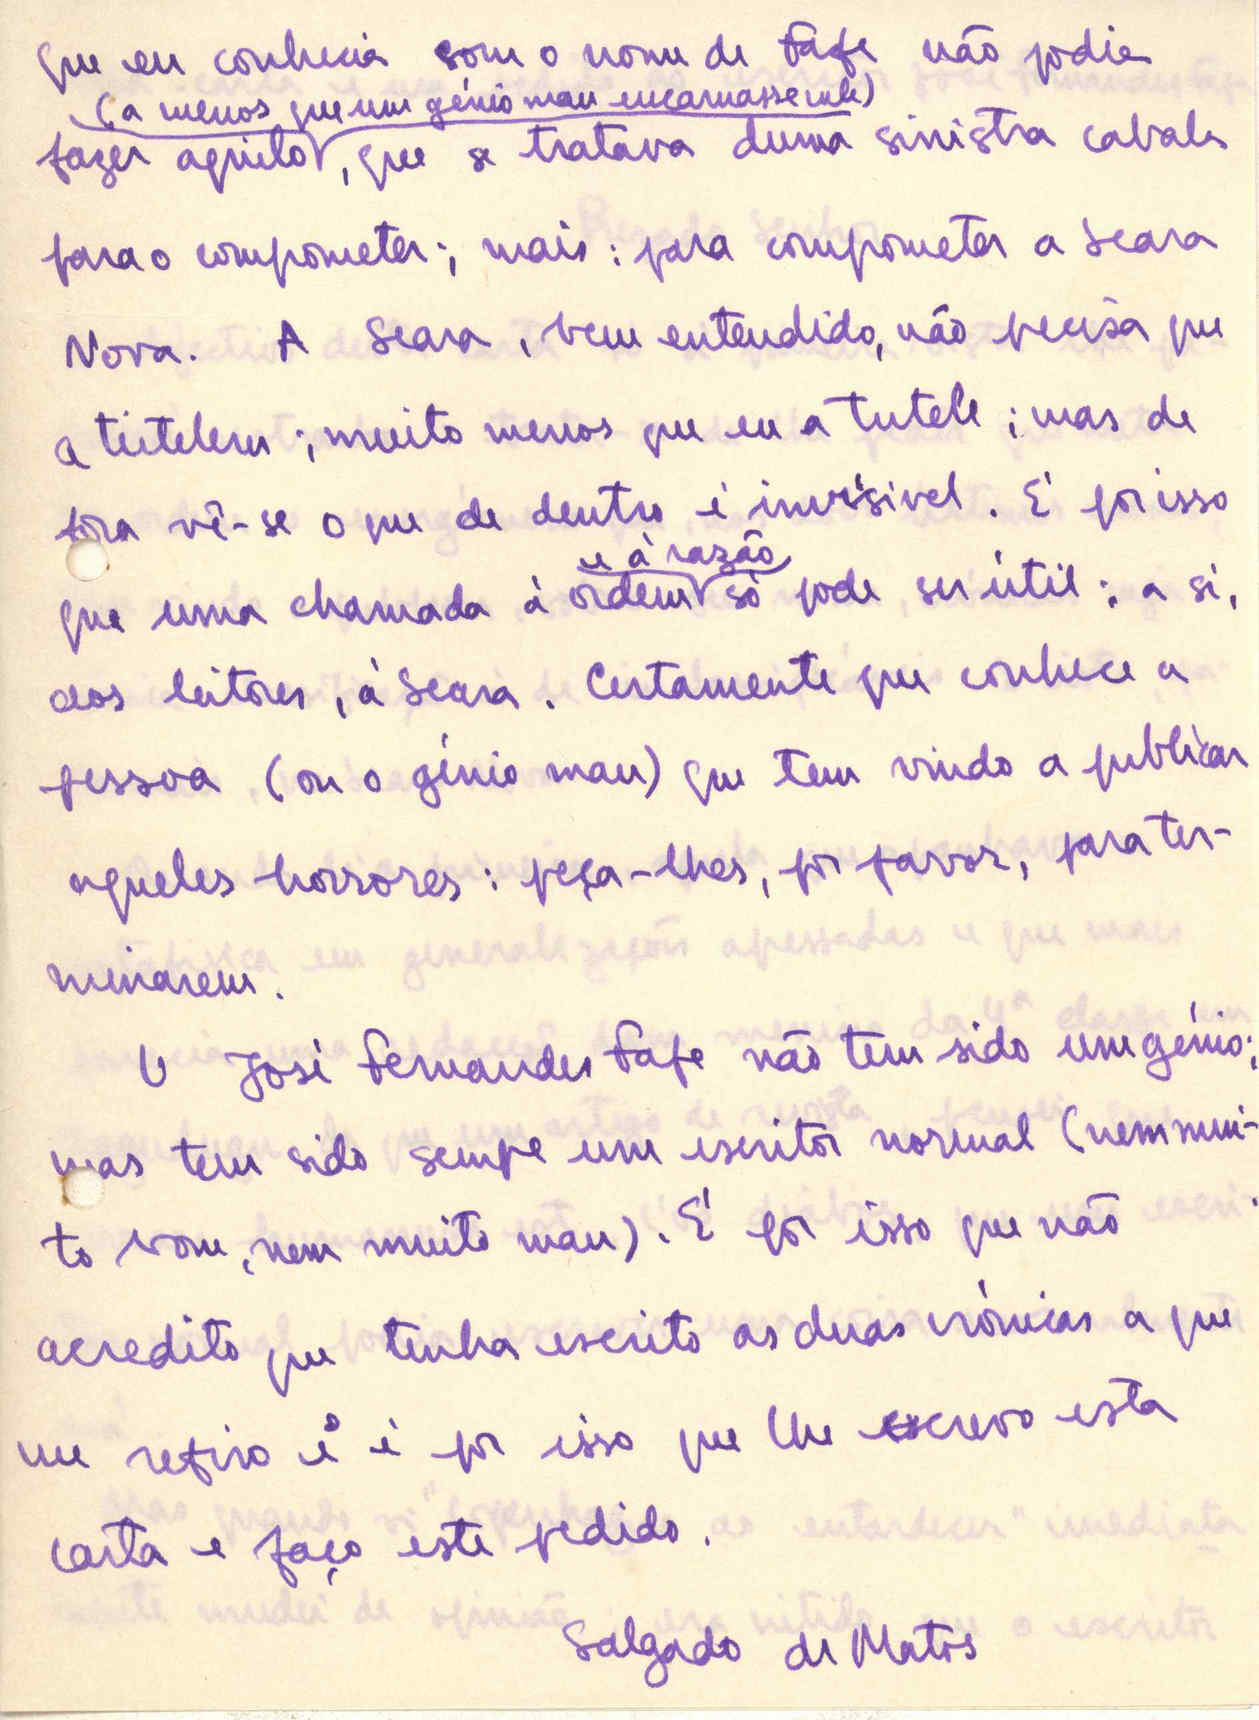 que eu conhecia com o nome de Fafe não podia
(a menos que um génio mau encarnasse nele)
fazer aquilo, que se tratava duma sinistra cabala
para o comprometer; mais: para comprometer a Seara
Nova. A Seara, bem entendido, não precisa que
a tutelem; muito menos que eu a tutele; mas de
fora vê-se o que de dentro é invisível. É por isso
e à razão
que uma chamada à ordem só pode ser útil: a si,
aos leitores, à Seara. Certamente que conhece a
pessoa (ou o génio mau) que tem vindo a publicar
aqueles horrores: peça-lhes, por favor, para ter-
minarem.
O José Fernandes Fafe não tem sido um génio;
mas tem sido sempre um escritor normal (nem mui-
to bom, nem muito mau). É por isso que não
acredito que tenha escrito as duas crónicas a que
me refiro e é por isso que lhe escrevo esta
carta e faço este pedido.
Salgado de Matos